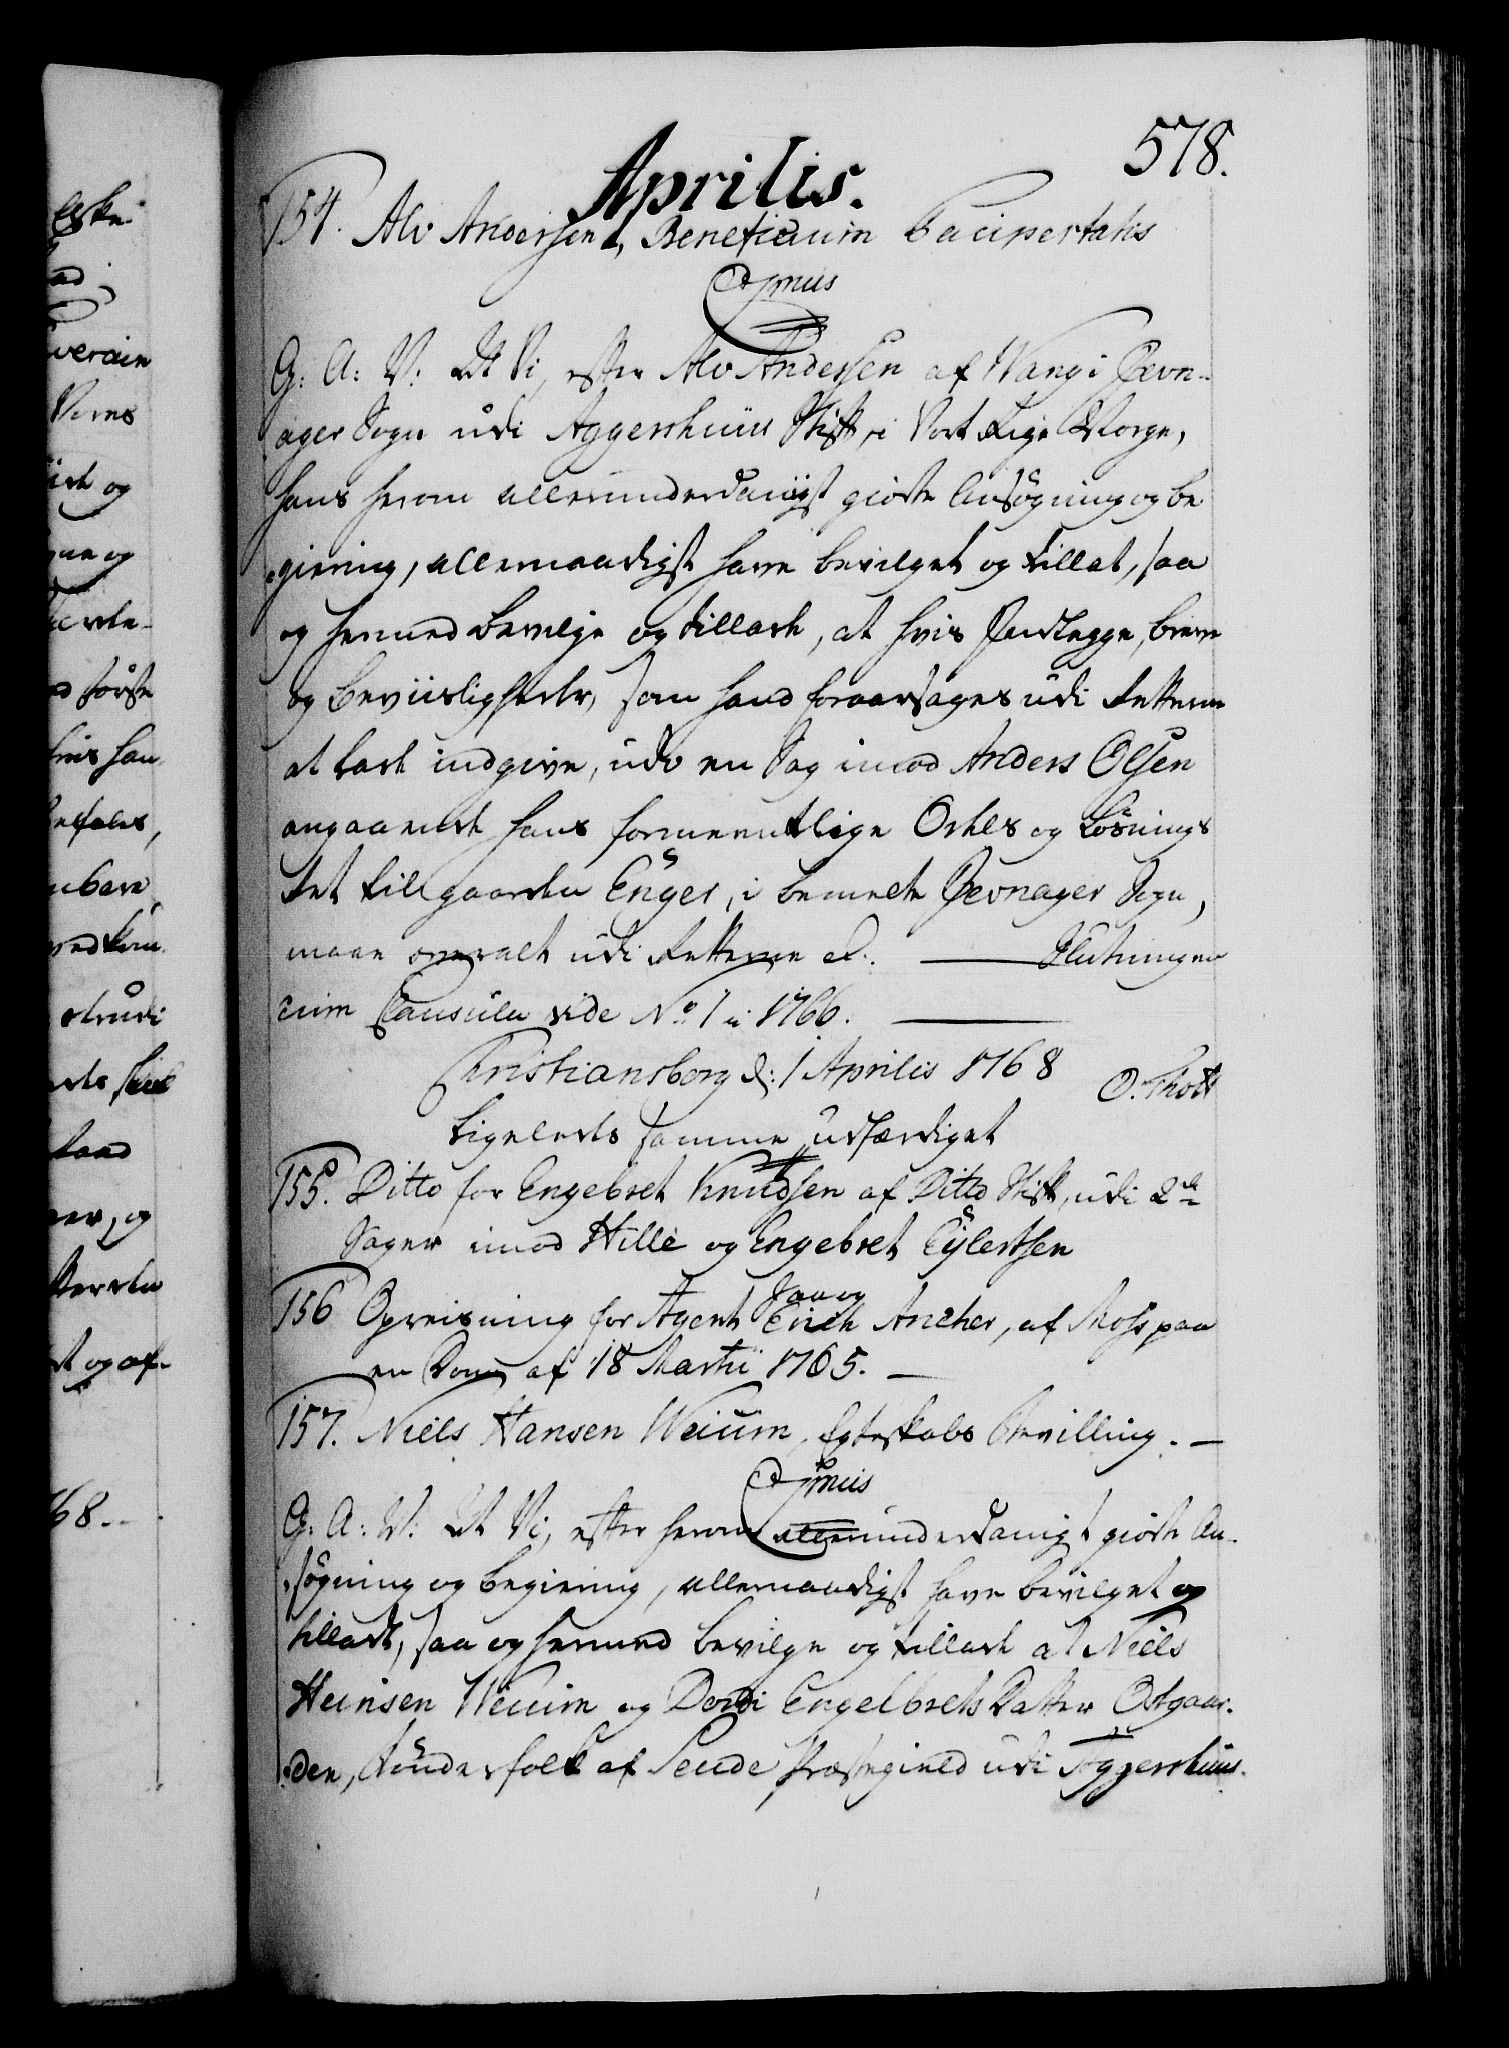 578.
Aprilis.
154. Alv Andersen, Beneficium Paupertatis
Gratis
G: A: V: At Vi, efter Alv Andersen af Wang i Jevn-
ager Sogn udi Aggershuus Stift, i Vort Rige Norge,
hans herom allerunderdanigst giorte Ansøgning og be
giering, allernaadigst have bevilget og tilladt, saa
og hermed bevilge og tillade, at hvis Indlegge, breve
og beviisligheder, som hand foraarsages udi Retterne
at lade indgive, udi en Sag imod Anders Olsen
angaaende hans formeentlige Odels og Løsnings
Ret til gaarden Enger, i bemelte Jevnager Sogn,
maae overalt udi Retterne &. Slutningen
cum Clausula vide No 1 i 1766.
Christiansborg d: 1 Aprilis 1768
O. Thott
Ligeledes samme udfærdiget
155. Ditto for Engebret Knudsen af Ditto Stift, udi 2de
Sager imod Hille og Engebret Eylertsen
156 Opreisning for Agent Erich Ancher, af Moss paa
en Dom af 18 Martii 1765.
157. Niels Hansen Weium, Egteskabs Bevilling.
Gratis
G: A: V: At Vi, efter herom allerunderdanigst giorte An-
søgning og begiering, allernaadigst have bevilget og
tilladt, saa og hermed bevilge og tillade at Niels
Hansen Weium og Dordi Engelbrets Datter Ostgaar-
den, bønderfolk af Præstegield udi Aggershuus